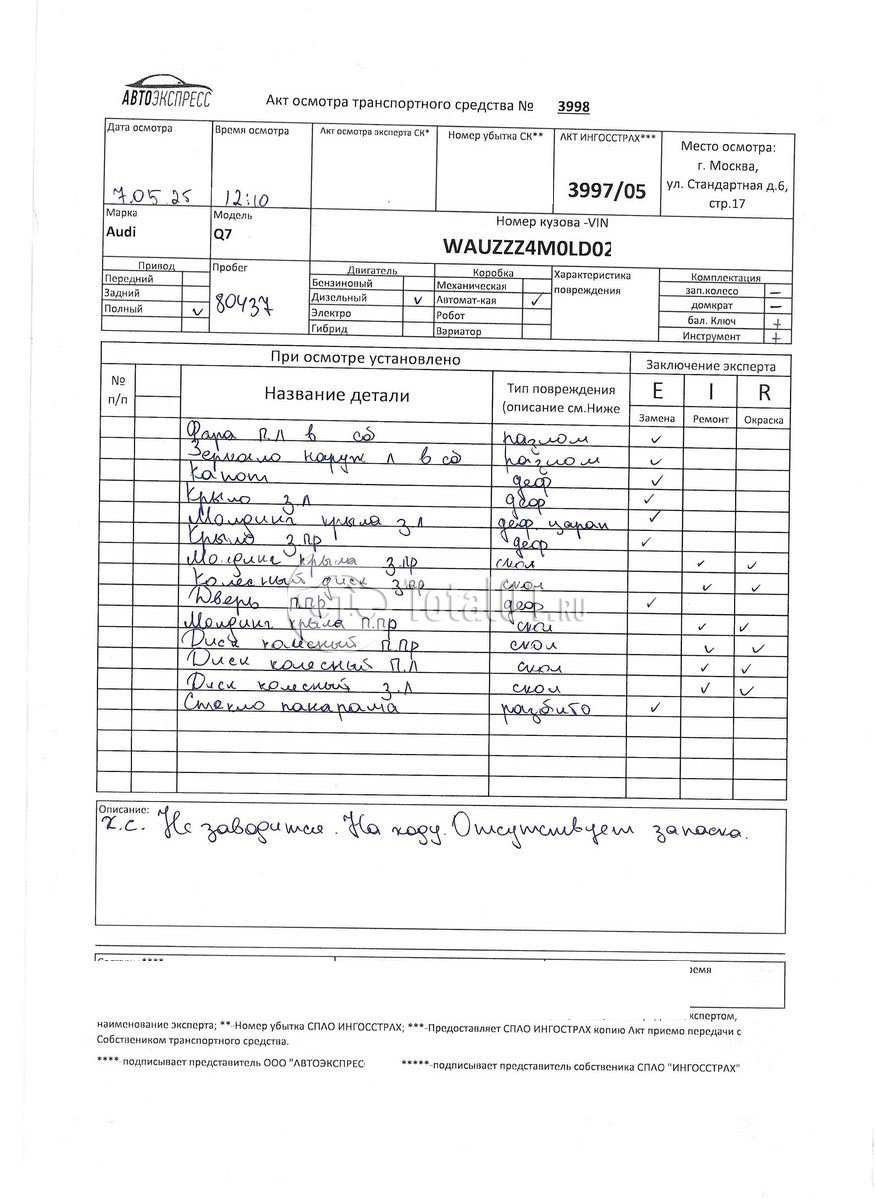 АВТОЭКСПРЕСС
Акт осмотра транспортного средства № 3998
Дата осмотра
Время осмотра
Акт осмотра эксперта СК*
Номер убытка СК**
АКТ ИНГОССТРАХ***
Место осмотра:
г. Москва,
ул. Стандартная д.6,
стр.17
7.05 25
12:10
3997/05
Марка
Модель
Номер кузова -VIN
Audi
Q7
WAUZZZ4M0LD02
Привод
Пробег
Двигатель
Коробка
Характеристика
повреждения
Комплектация
Передний
Бензиновый
Механическая
зап.колесо –
Задний
Дизельный v
Автомат-кая ✓
домкрат –
Полный v
80437
Электро
Робот
бал. Ключ +
Гибрид
Вариатор
Инструмент +
При осмотре установлено
Заключение эксперта
№
п/п
Название детали
Тип повреждения
(описание см.Ниже
E I R
Замена Ремонт Окраска
Фара П.Л в сб разлом ✓
Зеркало наруж Л в сб разлом ✓
Капот деф ✓
Крыло З Л деф ✓
Молдинг крыла З Л деф царап ✓
Крыло З.ПР деф ✓
Молдинг крыла З.ПР скол ✓ ✓
Колесный диск З ПР скол ✓ ✓
Дверь П.ПР деф ✓
Молдинг крыла П.ПР скол ✓ ✓
Диск колесный П.ПР скол ✓ ✓
Диск колесный П.Л скол ✓ ✓
Диск колесный З.Л скол ✓ ✓
Стекло панарама разбито ✓
Total01.RU
Описание:
Х.С. Не заводится. На ходу. Отсутствует запаска.
ремя
кспертом,
наименование эксперта; **-Номер убытка СПАО ИНГОССТРАХ; ***-Предоставляет СПАО ИНГОСТРАХ копию Акт приемо передачи с
Собствеником транспортного средства.
****-подписывает представитель ООО "АВТОЭКСПРЕС
*****-подписывает представитель собственика СПАО "ИНГОССТРАХ"